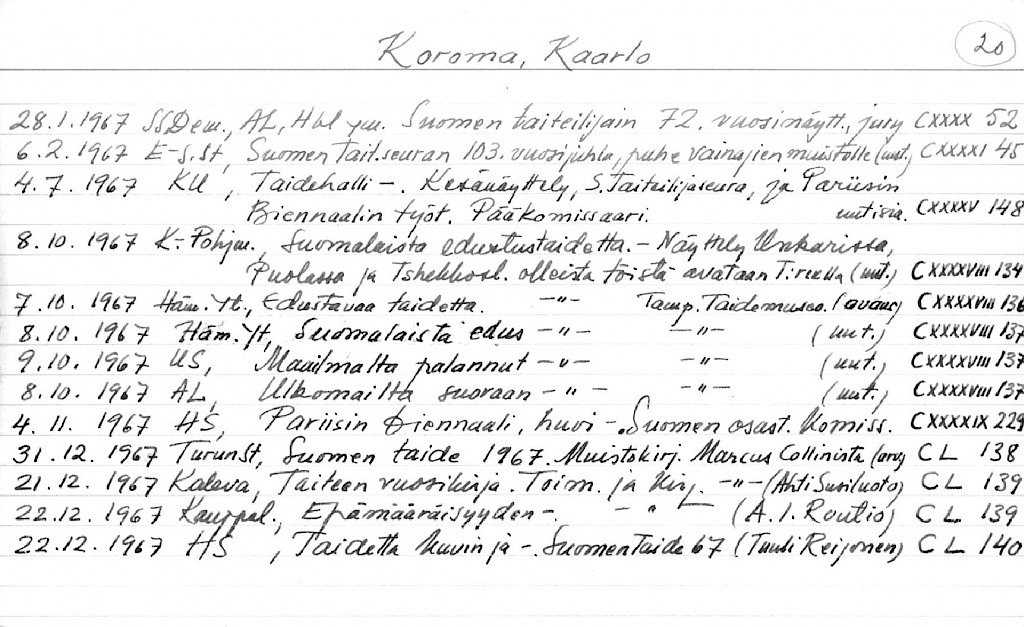 Koroma, Kaarlo 20
28.1.1967 SSDem., AL, Hbl ym. Suomen taiteilijain 72. vuosinäytt., jury CXXXX 52
6.2.1967 E-S.St, Suomen Tait.seuran 103. vuosijuhla, puhe vainajien muistolle (uut.) CXXXXI 45
4.7.1967 KU, Taidehalli -. Kesänäyttely, S.Taiteilijaseura, ja Pariisin
Biennaalin työt. Pääkomissaari. uutisia. CXXXXV 148
8.10.1967 K.-Pohjm., Suomalaista edustustaidetta. - Näyttely Unkarissa,
Puolassa ja Tshekkosl. olleista töistä avataan T:reella (uut.) CXXXXVIII 134
7.10.1967 Häm.Yht., Edustavaa taidetta. -"- Tamp. Taidemuseo. (avaus) CXXXXVIII 136
8.10.1967 Häm.Yht, Suomalaista edus -"- -"- (uut.) CXXXXVIII 137
9.10.1967 US, Maailmalta palannut -"- -"- (uut.) CXXXXVIII 137
8.10.1967 AL, Ulkomailta suoraan -"- -"- (uut.) CXXXXVIII 137
4.11.1967 HS, Pariisin biennaali, huvi -. Suomen osast. komiss. CXXXXIX 229
31.12.1967 TurunSt, Suomen taide 1967. Muistokirj. Marcus Collinista CL 138
21.12.1967 Kaleva, Taiteen vuosikirja. Toim. ja kirj. -"- (Ahti Susiluoto) CL 139
22.12.1967 Kauppal., Epämääräisyyden -. -"- (A.I. Routio) CL 139
22.12.1967 HS, Taidetta kuvin ja -. Suomen Taide 67 (Tuuli Reijonen) CL 140